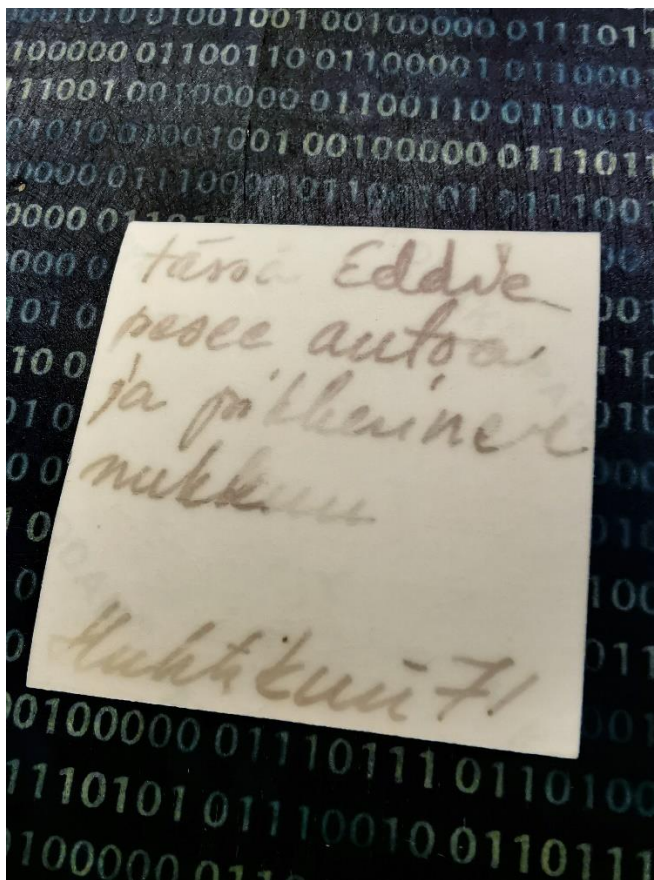 01010 01001001 00100000 0111011
100000 01100110 01100001 0110001
111001 00100000 01100110 0110010
01010 01001001 00100000 0111011
tässä Eddie
pesee autoa
ja pikkuinen
nukkuu
Huhtikuu 71
00100000 01110111 0110100
1110101 01110010 0110111
0100000 0110